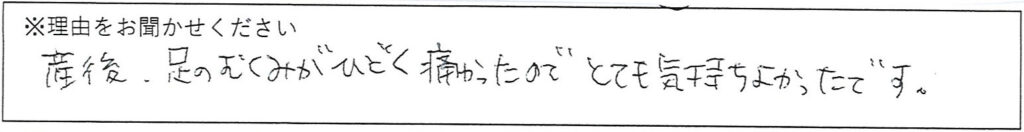 ※理由をお聞かせください
産後、足のむくみがひどく痛かったので とても気持ちよかったです。